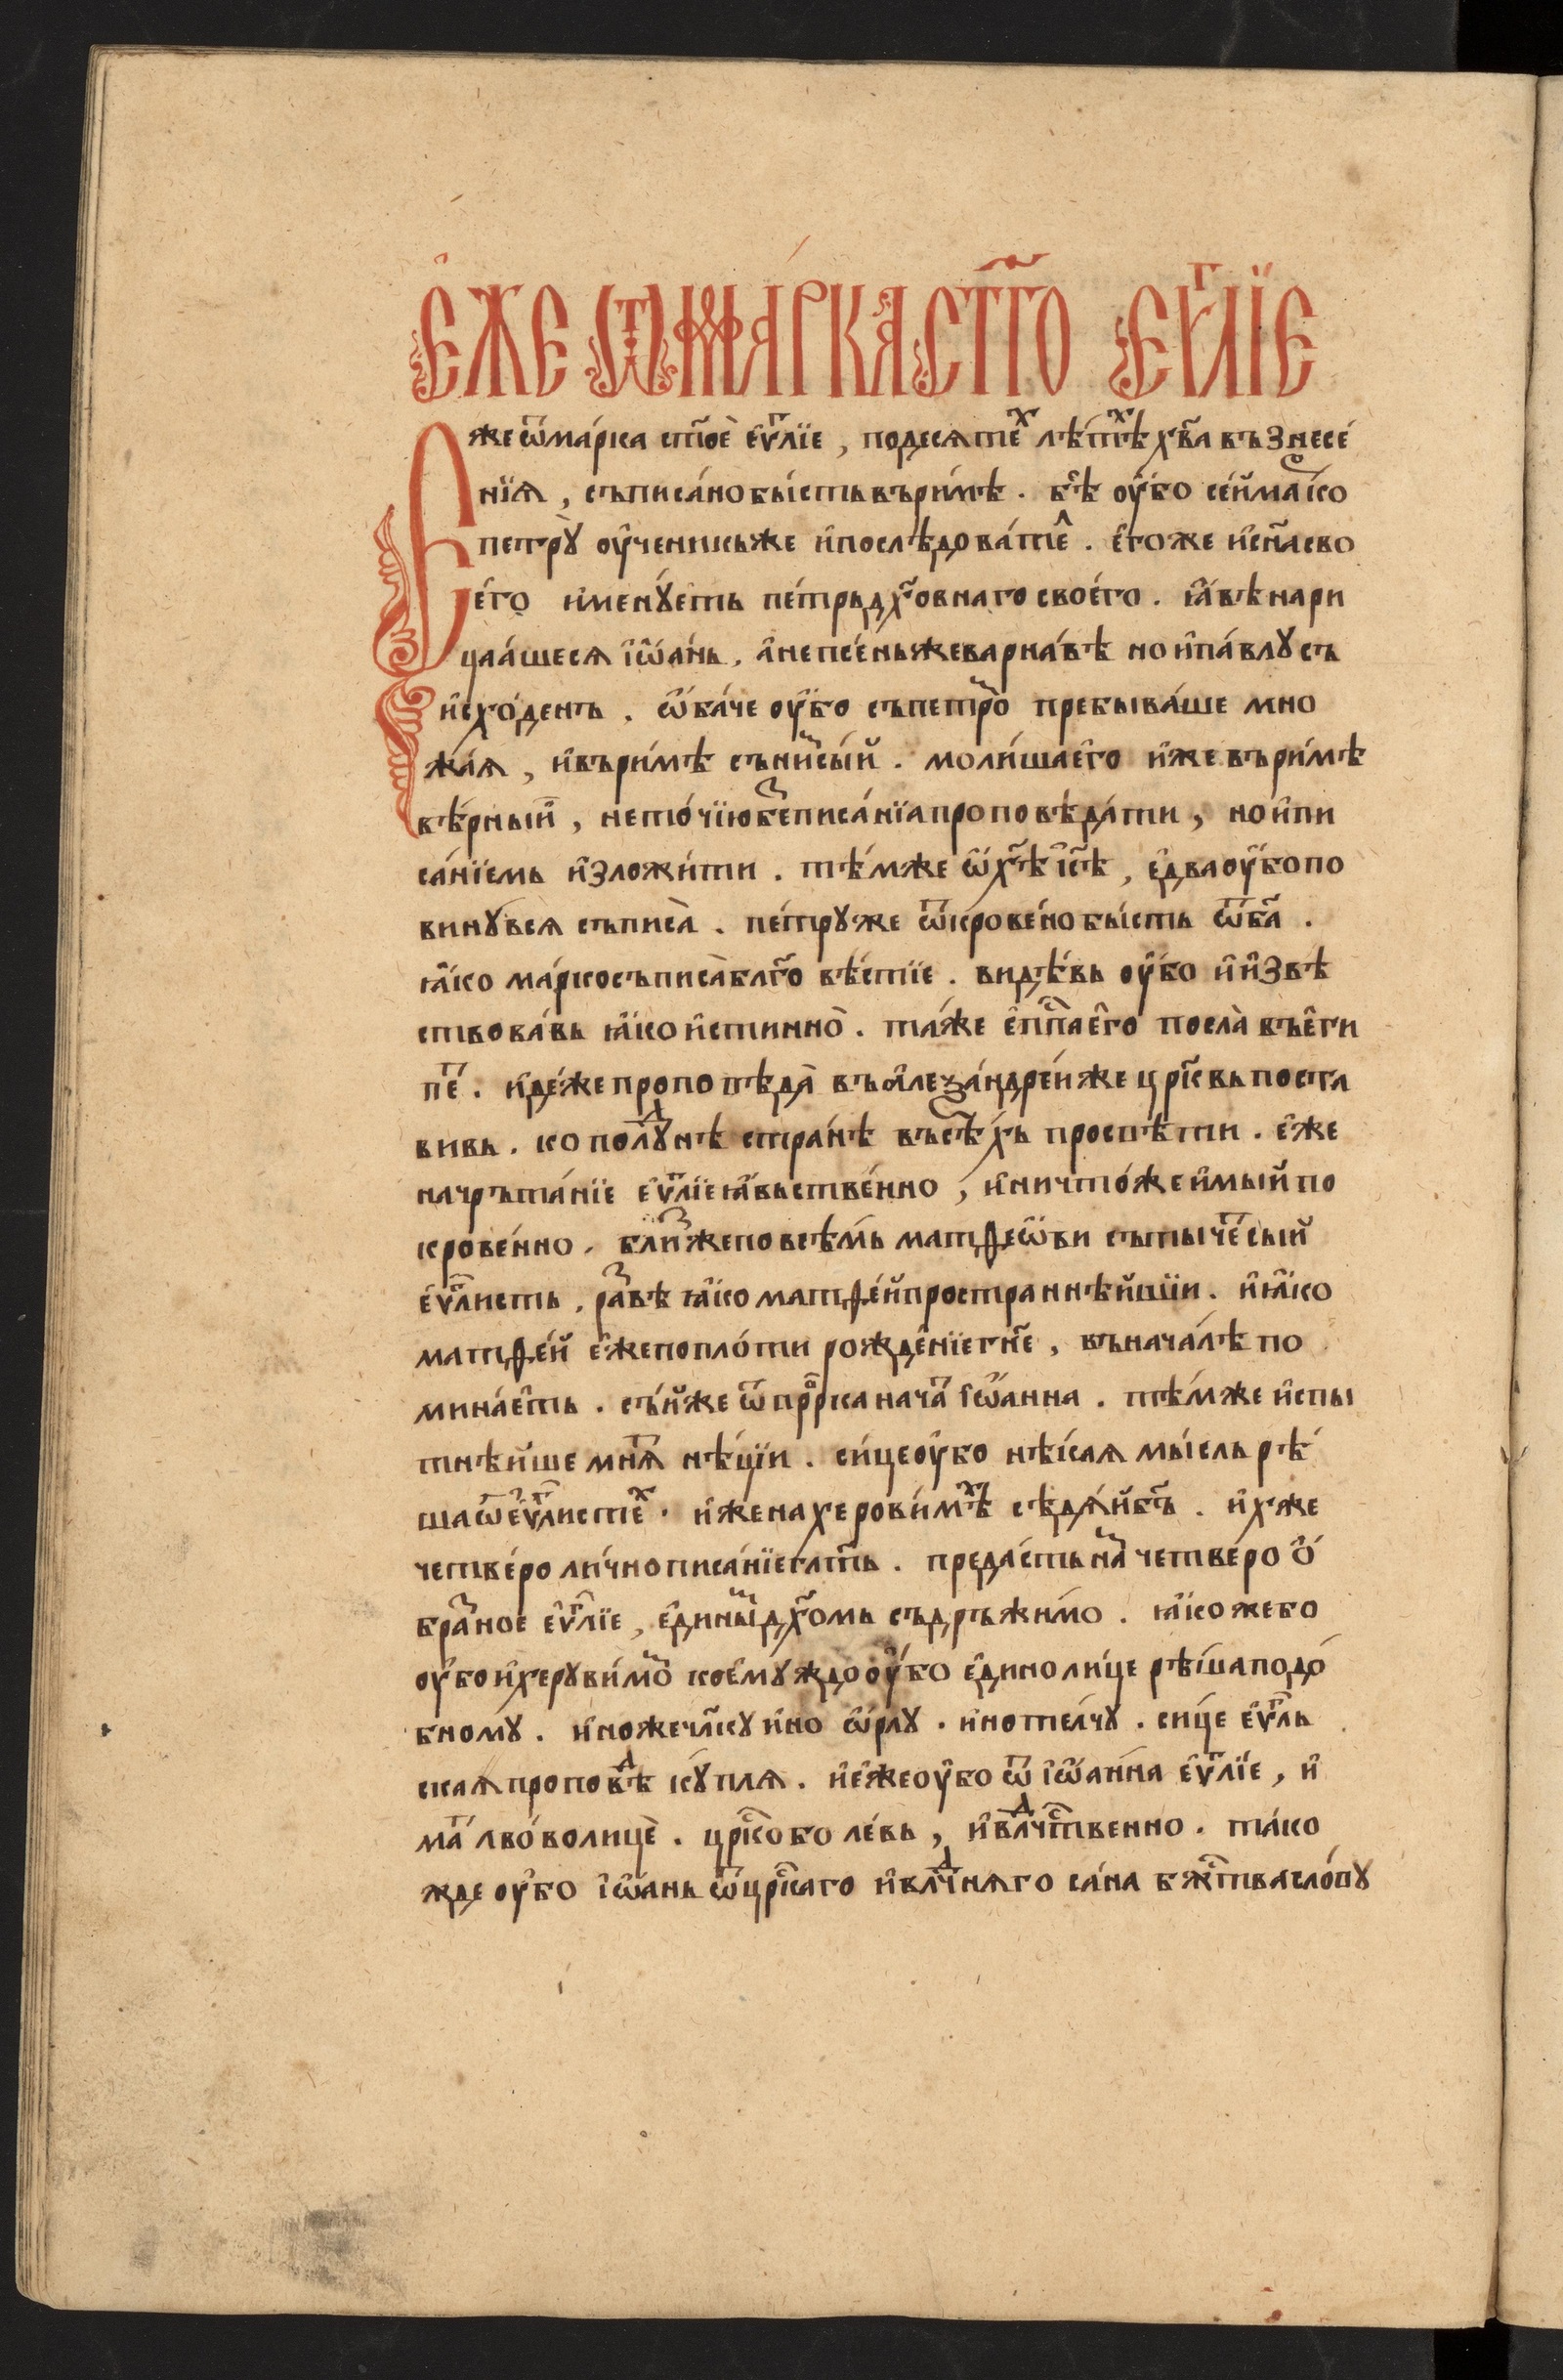 є҆́же ѿ ма́рка ст҃го є҆ѵⷢ҇лїе
Є҆же ѿ ма́рка ст҃о́е є҆ѵⷢ҇лїе, по десѧтеⷯ лѣ́тѣⷯ хв҃а възнесе́
нїѧ, съписа́но бы́сть въ ри́мѣ. бѣ̑ ѹ҆́бо се́й маⷬ҇ко
петрꙋ̀ ѹ҆чени́кь же и҆ послѣ́доватеⷧ҇. є҆го́же и҆ сн҃а сво
є҆го̀ и҆менꙋ́еть пе́трь дх҃овнаго своє҆го̀. ꙗ҆́вѣ нари
цаа́шесѧ і҆ѡ҆а́нь. а҆непсе́нь же варна́вѣ но и҆ па́влꙋ съ
и҆схо́день. ѡ҆ба́че ѹ҆́бо съ петроⷨ пребыва́ше мно
жа́ѧ, и҆ въ ри́мѣ съ ниⷨ сы́й. моли́ша є҆го̀ и҆же въ ри́мѣ
вѣ́рныи, не то́чїю беⷥ писа́нїа проповѣ́дати, но и҆ пи
са́нїемь и҆зложи́ти. тѣ́мже ѡ҆ хр҃тѣ і҆с҃ѣ, є҆два ѹ҆́бо по
винꙋ́всѧ съписа̀. пе́трꙋ же ѿкрове́но бы́сть ѿ бг҃а.
ꙗ҆́ко ма́рко съписа̀ бл҃го вѣ́стїе. видѣ́вь ѹ҆́бо и҆ и҆звѣ
ствова́вь ꙗ҆́ко и҆́стинно̀. та́же є҆пⷭ҇па є҆го̀ посла̀ въ є҆ги
пеⷮ. и҆дѣ́же проповѣ́да̀ въ а҆леѯа́ндреи же цр҃ковь поста
вивь. ко полꙋⷣнѣ странѣ̀ въсѣⷯхъ проспѣ́ти. є҆́же
начрьта́нїе є҆ѵⷢ҇лїе ꙗ҆́вьстве́нно, и҆ ничто́же и҆мы́й по
крове́нно. блиⷥ же по всѣ́мь матѳе́ѡ҆ви сътыче́ сый
є҆ѵⷢ҇листь, раⷥвѣ ꙗ҆́ко матѳе́й пространнѣ́йшїи. и҆ ꙗ҆́ко
матѳе́й є҆́же по пло́ти рожде́нїе гн҃е, въ нача́лѣ по
мина́еть. се́йже ѿ прⷪ҇рка начаⷮ і҆ѡ҆анна. тѣ́мже и҆спы
тнѣ́йше мнѧⷮ нѣ́цїи. си́це ѹ҆́бо нѣ́каѧ мы́сль рѣ́
ша ѿ є҆ѵⷢ҇листеⷯ. и҆́же на херови́мѣⷯ сѣдѧ́й бг҃ъ. и҆́хже
четверо ли́чно писа́нїе гл҃ть. преда́сть наⷨ четве́ро ѻ҆́
браⷥное є҆ѵⷢ҇лїе, є҆ди́ныⷨ дх҃омь съдръжи́мо. ꙗ҆́коже бо
ѹ҆́бо и҆ херꙋви́моⷨ коемꙋ́ждо ѹ҆́бо є҆ди́но лице рѣ́ша подо́
бномꙋ. и҆́но же чл҃кꙋ и҆́но ѡ҆рлꙋ̀. и҆́но те́лчꙋ. си́це є҆ѵⷢ҇ль
скаѧ проповѣⷣ кꙋ́плѧ. и҆ є҆́же ѹ҆́бо ѿ і҆ѡ҆а́нна є҆ѵⷢ҇лїе, и҆
маⷮ льво́во лицѐ. црⷭ҇ко бо ле́вь, и҆ влⷣчⷭ҇твенно. та́ко
жде ѹ҆́бо і҆ѡ҆а́нь ѿ црⷭ҇каго и҆ влⷣчнѧго са́на бжⷭ҇тва сло́вꙋ